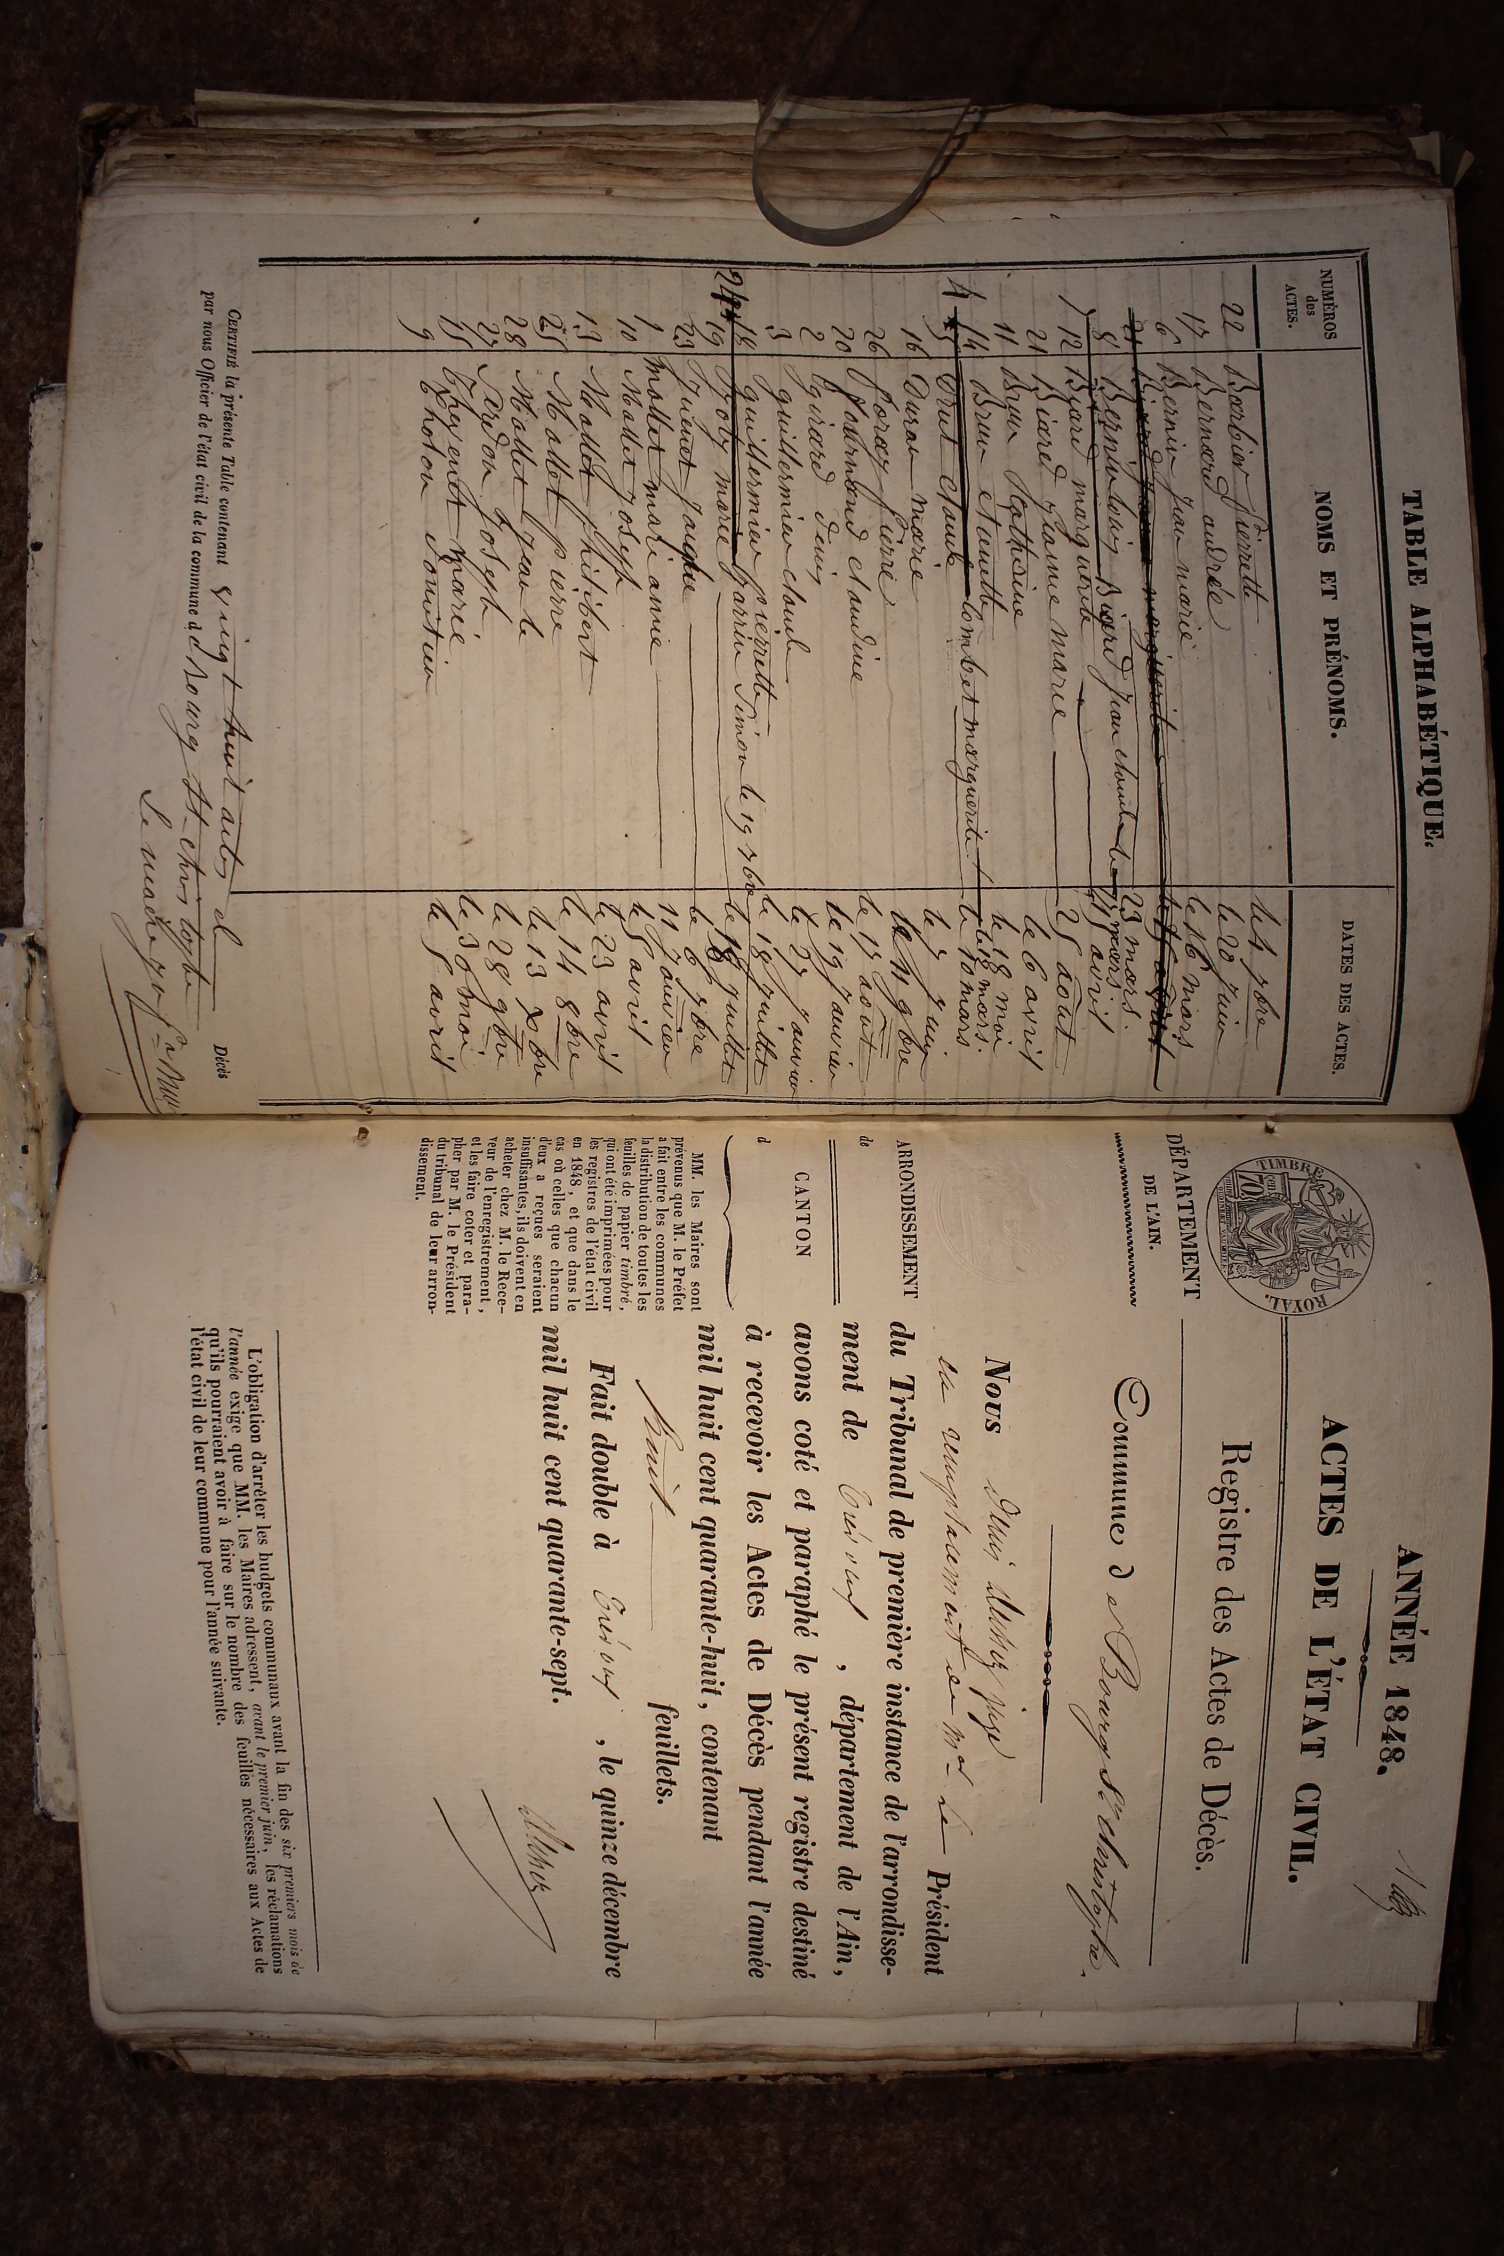 TABLE ALPHABÉTIQUE.
NUMÉROS des ACTES.
NOMS ET PRÉNOMS.
DATES DES ACTES.
22 Barbier pierrette le 4 7bre
17 Bernard andrée le 20 juin
6 Bernin jean marie le 16 mars
8 Bernin Biard jean claude le 23 mars.
7 12 Biard marguerite 15 avril
21 Biard jeanne marie 25 août
11 Brun Catherine le 6 avril
14 Brun etiennette le 18 mai
4 Brut claude Combet marguerite le 10 mars
16 Duran marie le 7 juin
26 foray pierre le 11 9bre
20 fournand claudine le 17 août
2 Girard denis le 19 janvier
3 guillermier claude le 27 janvier
18 guillermier pierrette le 18 juillet
24 garrin Simon le 19 7bre
19 joby marie le 18 juillet
23 juenet jacques le 6 7bre
1 Mollet marie anne 11 janvier
10 Mallet joseph le 5 avril
13 Mallet philibert le 23 avril
25 Mallet pierre le 14 8bre
28 Mallet jean le 13 Xbre
27 Perdon joseph le 28 9bre
15 Thevenet marie le 30 mai
9 Thoton le 5 avril
CERTIFIÉ la présente Table contenant vingt huit actes de Décès
par nous Officier de l'état civil de la commune d e Bourg St christophe
Le maire
DÉPARTEMENT
DE L'AIN.
ARRONDISSEMENT
de
CANTON
d
MM. les Maires sont
prévenus que M. le Préfet
a fait entre les communes
la distribution de toutes les
feuilles de papier timbré,
qui ont été imprimées pour
les registres de l'état civil
en 1848, et que dans le
cas où celles que chacun
d'eux a reçues seraient
insuffisantes, ils doivent en
acheter chez M. le Rece-
veur de l'enregistrement,
et les faire coter et para-
pher par M. le Président
du tribunal de leur arron-
dissement.
TIMBRE ROYAL.
70 cen
ANNÉE 1848.
ACTES DE L'ÉTAT CIVIL.
Registre des Actes de Décès.
Commune d e Bourg St Christophe.
Nous juge
en remplacement de Mr le Président
du Tribunal de première instance de l'arrondisse-
ment de Trévoux, département de l'Ain,
avons coté et paraphé le présent registre destiné
à recevoir les Actes de Décès pendant l'année
mil huit cent quarante-huit, contenant
huit feuillets.
Fait double à Trévoux, le quinze décembre
mil huit cent quarante-sept.
L'obligation d'arrêter les budgets communaux avant la fin des six premiers mois de
l'année exige que MM. les Maires adressent, avant le premier juin, les réclamations
qu'ils pourraient avoir à faire sur le nombre des feuilles nécessaires aux Actes de
l'état civil de leur commune pour l'année suivante.